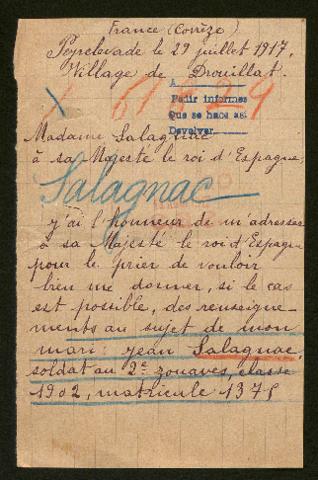 France (Corrèze)
Peyrelevade le 29 juillet 1917.
Village de Drouillat.
X 61829
A
Pedir informes
Que se hace así
Devolver
Madame Salagnac
à sa Majesté le roi d'Espagne,
Salagnac
j'ai l'honneur de m'adresser
à sa Majesté le roi d'Espagne
pour le prier de vouloir
bien me donner, si le cas
est possible, des renseigne-
ments au sujet de mon
mari: jean Salagnac,
soldat au 2e zouaves, classe
1902, matricule 1375